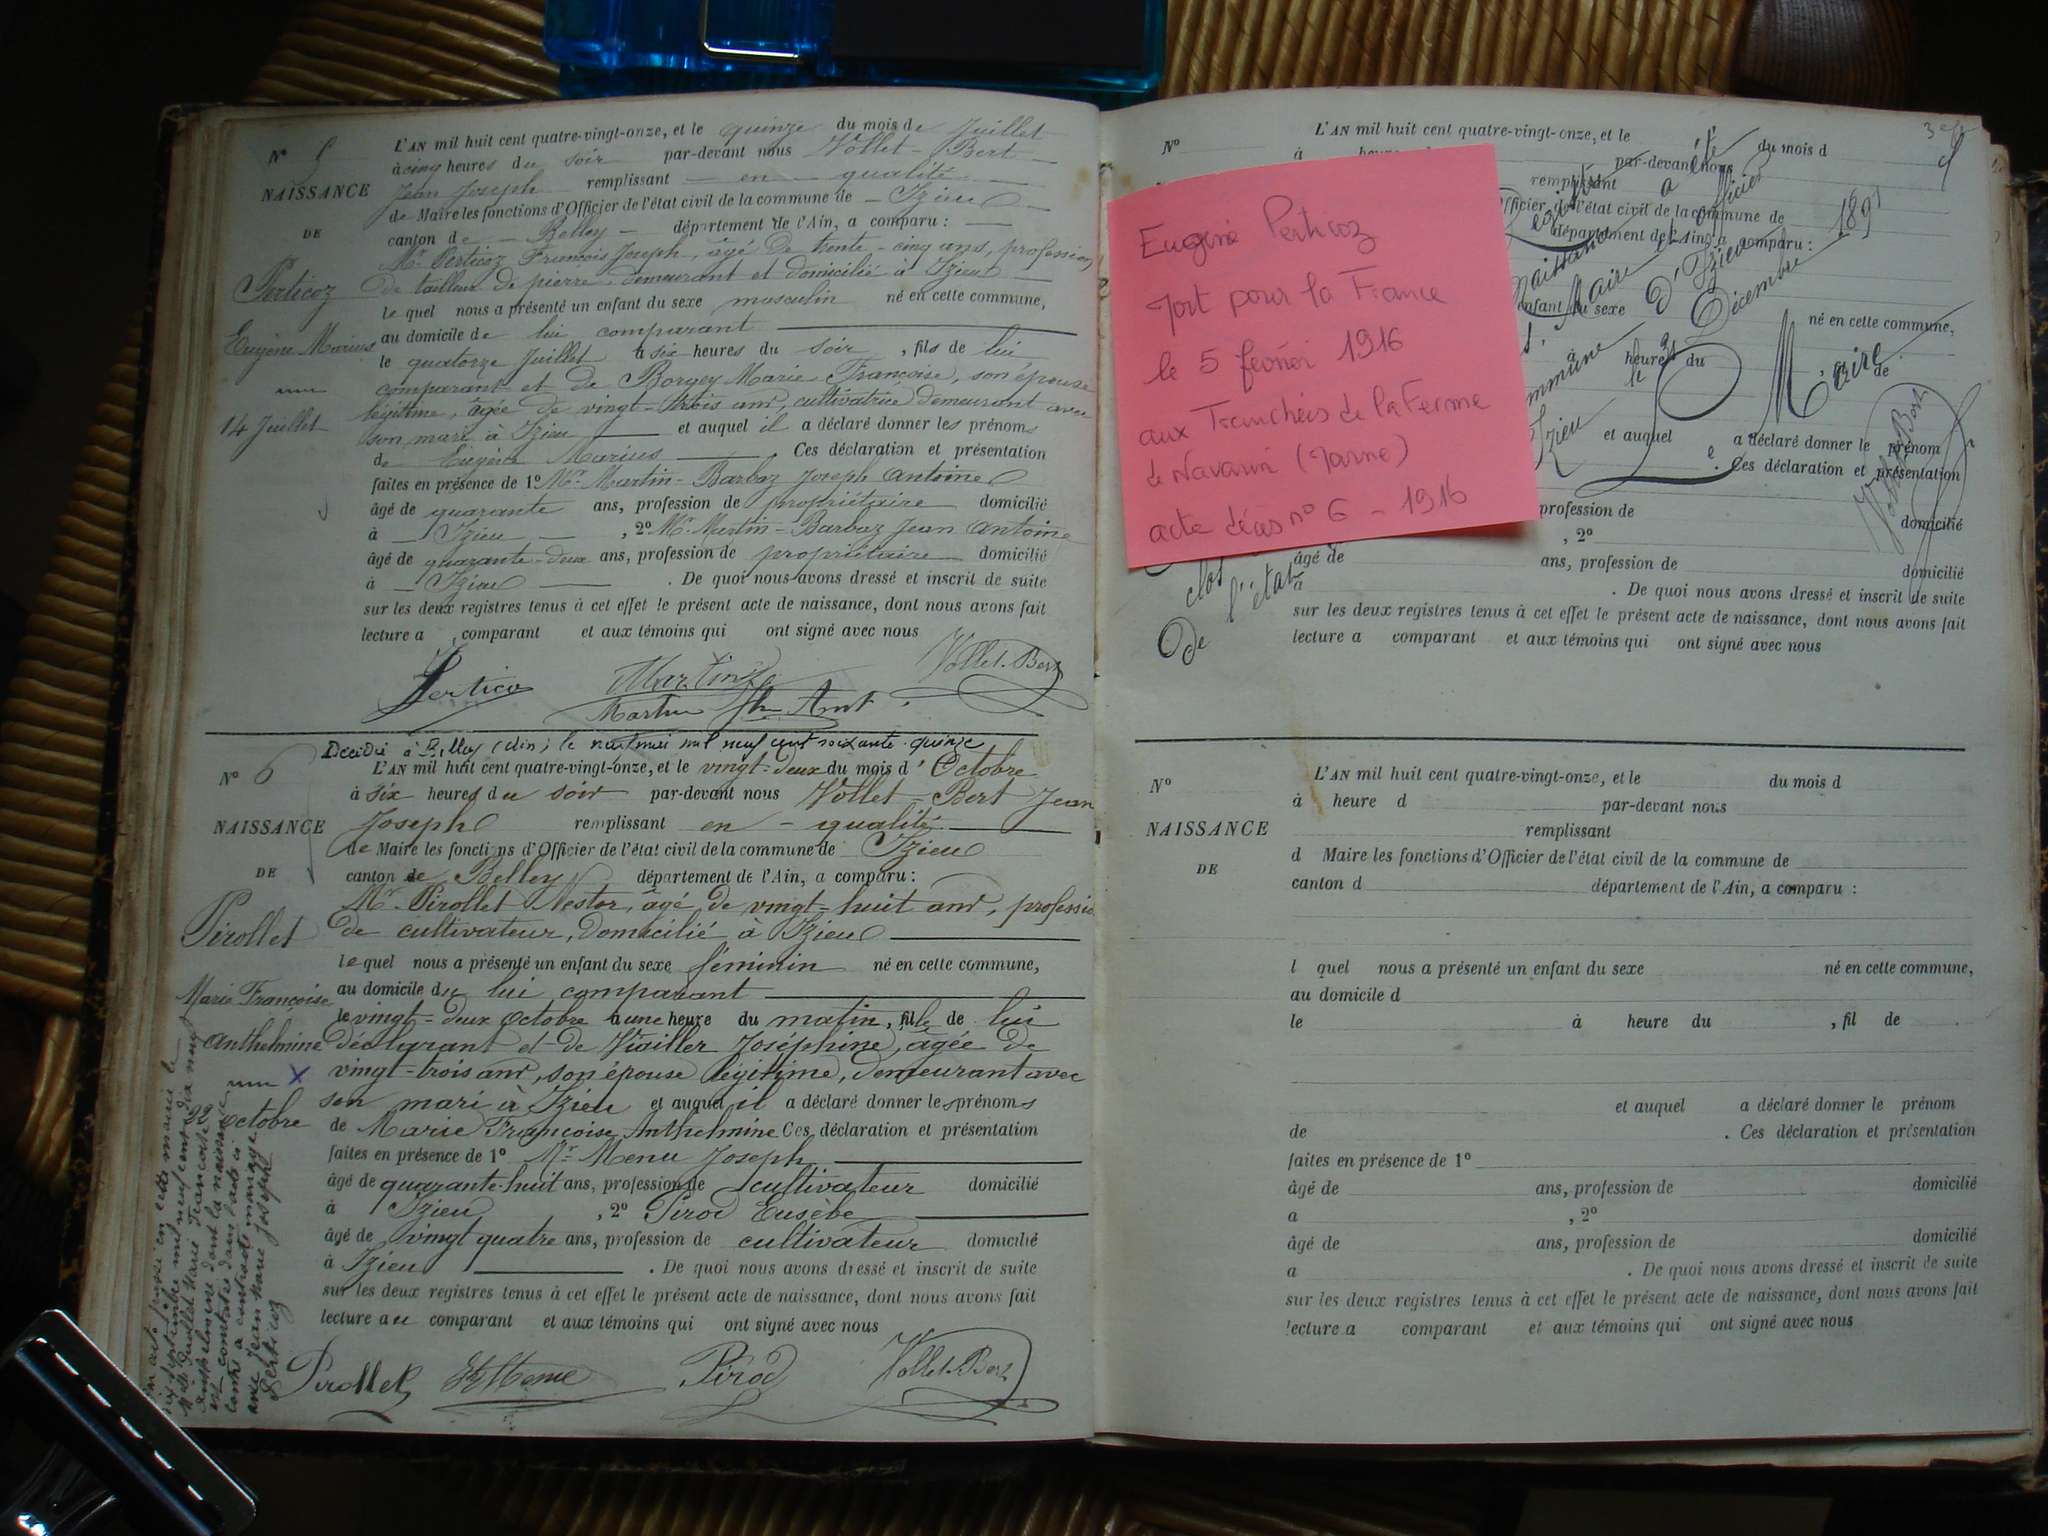 N° 5
NAISSANCE
DE
Perticoz
Eugène Marius
14 Juillet
L'AN mil huit cent quatre-vingt-onze, et le quinze du mois de Juillet
à cinq heures du soir par-devant nous Vollet-Bert
Jean Joseph remplissant en qualité
de Maire les fonctions d'Officier de l'état civil de la commune de Izieu
canton de Belley département de l'Ain, a comparu :
Mr Perticoz François Joseph, âgé de trente-cinq ans, profession
de tailleur de pierre, demeurant et domicilié à Izieu
lequel nous a présenté un enfant du sexe masculin né en cette commune,
au domicile de lui comparant
le quatorze Juillet à six heures du soir, fils de lui
comparant et de Borgey Marie Françoise, son épouse
légitime, âgée de vingt-trois ans, cultivatrice demeurant avec
son mari à Izieu et auquel il a déclaré donner les prénoms
de Eugène Marius Ces déclaration et présentation
faites en présence de 1° Mr Martin-Barbaz Joseph Antoine
âgé de quarante ans, profession de propriétaire domicilié
à Izieu, 2° Mr Martin-Barbaz Jean Antoine
âgé de quarante-deux ans, profession de propriétaire domicilié
à Izieu. De quoi nous avons dressé et inscrit de suite
sur les deux registres tenus à cet effet le présent acte de naissance, dont nous avons fait
lecture a comparant et aux témoins qui ont signé avec nous
Perticoz Martin Vollet-Bert
Martin Jh Ant
Décédée à Belley (Ain) le neuf mai mil neuf cent soixante-quinze
N° 6
NAISSANCE
DE
Pirollet
Marie Françoise
Anthelmine
22
octobre
L'AN mil huit cent quatre-vingt-onze, et le vingt-deux du mois d'Octobre
à six heures du soir par-devant nous Vollet-Bert Jean
Joseph remplissant en qualité
de Maire les fonctions d'Officier de l'état civil de la commune de Izieu
canton de Belley département de l'Ain, a comparu :
Mr Pirollet Nestor, âgé de vingt-huit ans, professio
de cultivateur, domicilié à Izieu
lequel nous a présenté un enfant du sexe féminin né en cette commune,
au domicile du lui comparant
le vingt-deux Octobre à une heure du matin, fille de lui
déclarant et de Joséphine, âgée de
vingt-trois ans, son épouse légitime, demeurant avec
son mari à Izieu et auquel il a déclaré donner les prénoms
de Marie Françoise Anthelmine Ces déclaration et présentation
faites en présence de 1° Mr Menu Joseph
âgé de quarante-huit ans, profession de cultivateur domicilié
à Izieu, 2° Pirod Eusèbe
âgé de vingt quatre ans, profession de cultivateur domicilié
à Izieu. De quoi nous avons dressé et inscrit de suite
sur les deux registres tenus à cet effet le présent acte de naissance, dont nous avons fait
lecture au comparant et aux témoins qui ont signé avec nous
Pirollet Pirod Vollet-Bert
Par acte passé en cette mairie le
septembre mil neuf cent dix neuf
Melle Pirollet Marie Françoise
Anthelmine dont la naissance
est constatée dans l'acte ci
contre a contracté mariage
avec Jean Marie Joseph
Perticoz
Eugène Perticoz
Mort pour la France
le 5 février 1916
aux Tranchées de la Ferme
de Navarin (Marne)
acte décès n° 6 - 1916
N°
L'AN mil huit cent quatre-vingt-onze, et le du mois d
à heure par-devant nous
remplissant
Officier de l'état civil de la commune de
département de l'Ain, a comparu :
enfant du sexe né en cette commune,
à heure du, fil de
et auquel a déclaré donner le prénom
. Ces déclaration et présentation
profession de domicilié
, 2°
âgé de ans, profession de domicilié
à . De quoi nous avons dressé et inscrit de suite
sur les deux registres tenus à cet effet le présent acte de naissance, dont nous avons fait
lecture a comparant et aux témoins qui ont signé avec nous
clos
De l'état
naissance
Maire d'Izieu
Décembre 1891
Le Maire
Vollet-Bert
N°
NAISSANCE
DE
L'AN mil huit cent quatre-vingt-onze, et le du mois d
à heure d par-devant nous
remplissant
d Maire les fonctions d'Officier de l'état civil de la commune de
canton d département de l'Ain, a comparu :
l quel nous a présenté un enfant du sexe né en cette commune,
au domicile d
le à heure du , fil de
et auquel a déclaré donner le prénom
de . Ces déclaration et présentation
faites en présence de 1°
âgé de ans, profession de domicilié
a , 2°
âgé de ans, profession de domicilié
a . De quoi nous avons dressé et inscrit de suite
sur les deux registres tenus à cet effet le présent acte de naissance, dont nous avons fait
lecture a comparant et aux témoins qui ont signé avec nous